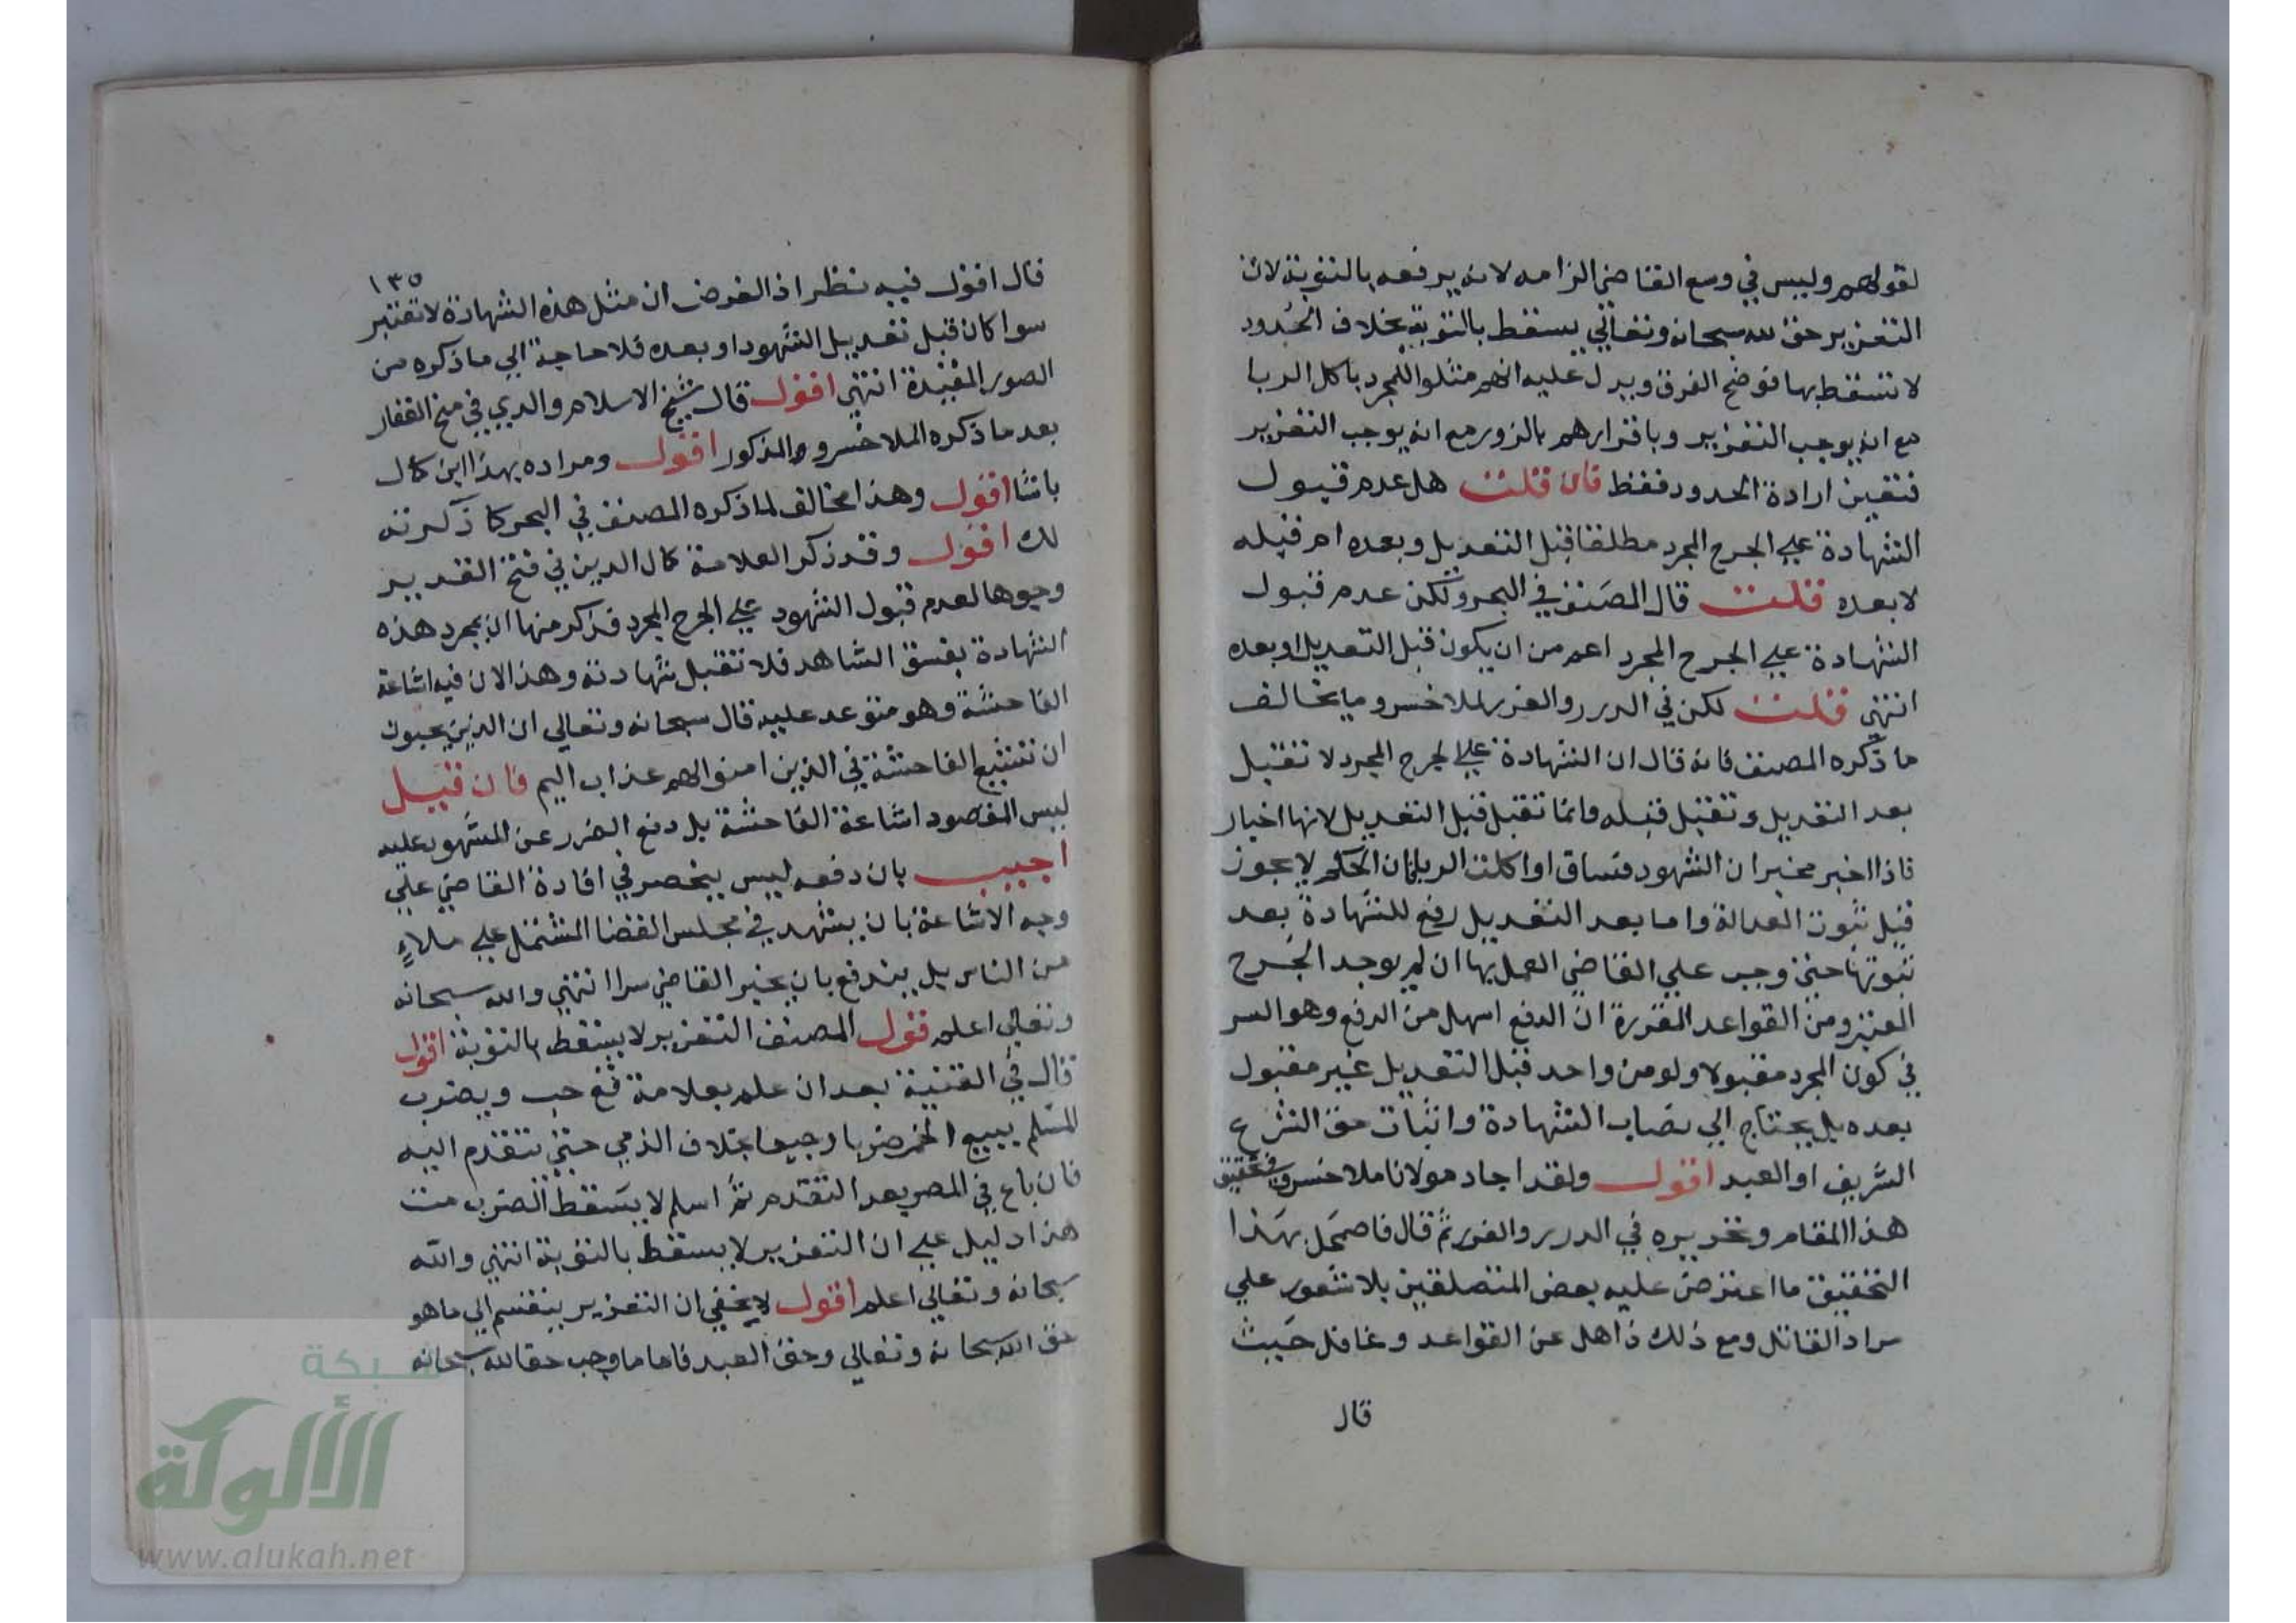 لقولهم وليس في وسع القاضي الزامه لانه يرفعه بالتوبة لان
التعزير حق لله سبحانه وتعالي يسقط بالتوبة بخلاف الحدود
لا تسقط بها فوضح الفرق ويدل عليه انهم مثلوا للمجرد باكل الربا
مع انه يوجب التعزير وباقرارهم بالزور مع انه يوجب التعزير
فتعين ارادة الحدود فقط فان قلت هل عدم قبول
الشهادة علي الجرح المجرد مطلقا قبل التعديل وبعده ام قبله
لا بعده قلت قال المصنف في البحر ولكن عدم قبول
الشهادة علي الجرح المجرد اعم من ان يكون قبل التعديل او بعده
انتهي قلت لكن في الدرر والغرر لملا خسرو ما يخالف
ما ذكره المصنف فانه قال ان الشهادة علي الجرح المجرد لا تقبل
بعد التعديل وتقبل قبله وانما تقبل قبل التعديل لانها اخبار
فاذا اخبر مخبر ان الشهود فساق او اكلت الربا فان الحكم لا يجوز
قبل ثبوت العدالة واما بعد التعديل رفع للشهادة بعد
ثبوتها حتي وجب علي القاضي العمل بها ان لم يوجد الجرح
المعتبر ومن القواعد المقررة ان الدفع اسهل من الرفع وهو السر
في كون المجرد مقبولا ولو من واحد قبل التعديل غير مقبول
بعده بل يحتاج الي نصاب الشهادة واثبات حق الشرع
الشريف او العبد اقول ولقد اجاد مولانا ملا خسرو في تحقيق
هذا المقام وتحريره في الدرر والغرر ثم قال فاضمحل بهذا
التحقيق ما اعترض عليه بعض المتصلفين بلا شعور علي
مراد القائل ومع ذلك ذاهل عن القواعد وغافل حيث
قال
١٣٥
قال اقول فيه نظر اذ الغرض ان مثل هذه الشهادة لا تعتبر
سوا كان قبل تعديل الشهود او بعده فلا حاجة الي ما ذكره من
الصور المقيدة انتهي اقول قال شيخ الاسلام والدي في منح الغفار
بعد ما ذكره الملا خسرو والمذكور اقول ومراده بهذا ابن كمال
باشا اقول وهذا مخالف لما ذكره المصنف في البحر كما ذكرته
لك اقول وقد ذكر العلامة كمال الدين في فتح القدير
وجوها لعدم قبول الشهود علي الجرح المجرد فذكر منها ان بمجرد هذه
الشهادة يفسق الشاهد فلا تقبل شهادته وهذا لان فيه اشاعة
الفاحشة وهو متوعد عليه قال سبحانه وتعالي ان الذين يحبون
ان تشيع الفاحشة في الذين امنوا لهم عذاب اليم فان قيل
ليس المقصود اشاعة الفاحشة بل دفع الضرر عن المشهود عليه
اجيب بان دفعه ليس ينحصر في افادة القاضي علي
وجه الاشاعة بان يشهد في مجلس القضا المشتمل علي ملاء
من الناس بل يندفع بان يخبر القاضي سرا انتهي والله سبحانه
وتعالي اعلم قول المصنف التعزير لا يسقط بالتوبة اقول
قال في القنية بعد ان علم بعلامة فع حب ويضرب
المسلم ببيع الخمر ضربا وجيعا بخلاف الذمي حتي يتقدم اليه
فان باع في المصر بعد التقدم ثم اسلم لا يسقط الضرب مت
هذا دليل علي ان التعزير لا يسقط بالتوبة انتهي والله
سبحانه وتعالي اعلم اقول لا يخفي ان التعزير ينقسم الي ما هو
حق الله سبحانه وتعالي وحق العبد فاما ما وجب حقا لله سبحانه
شبكة
الألوكة
www.alukah.net